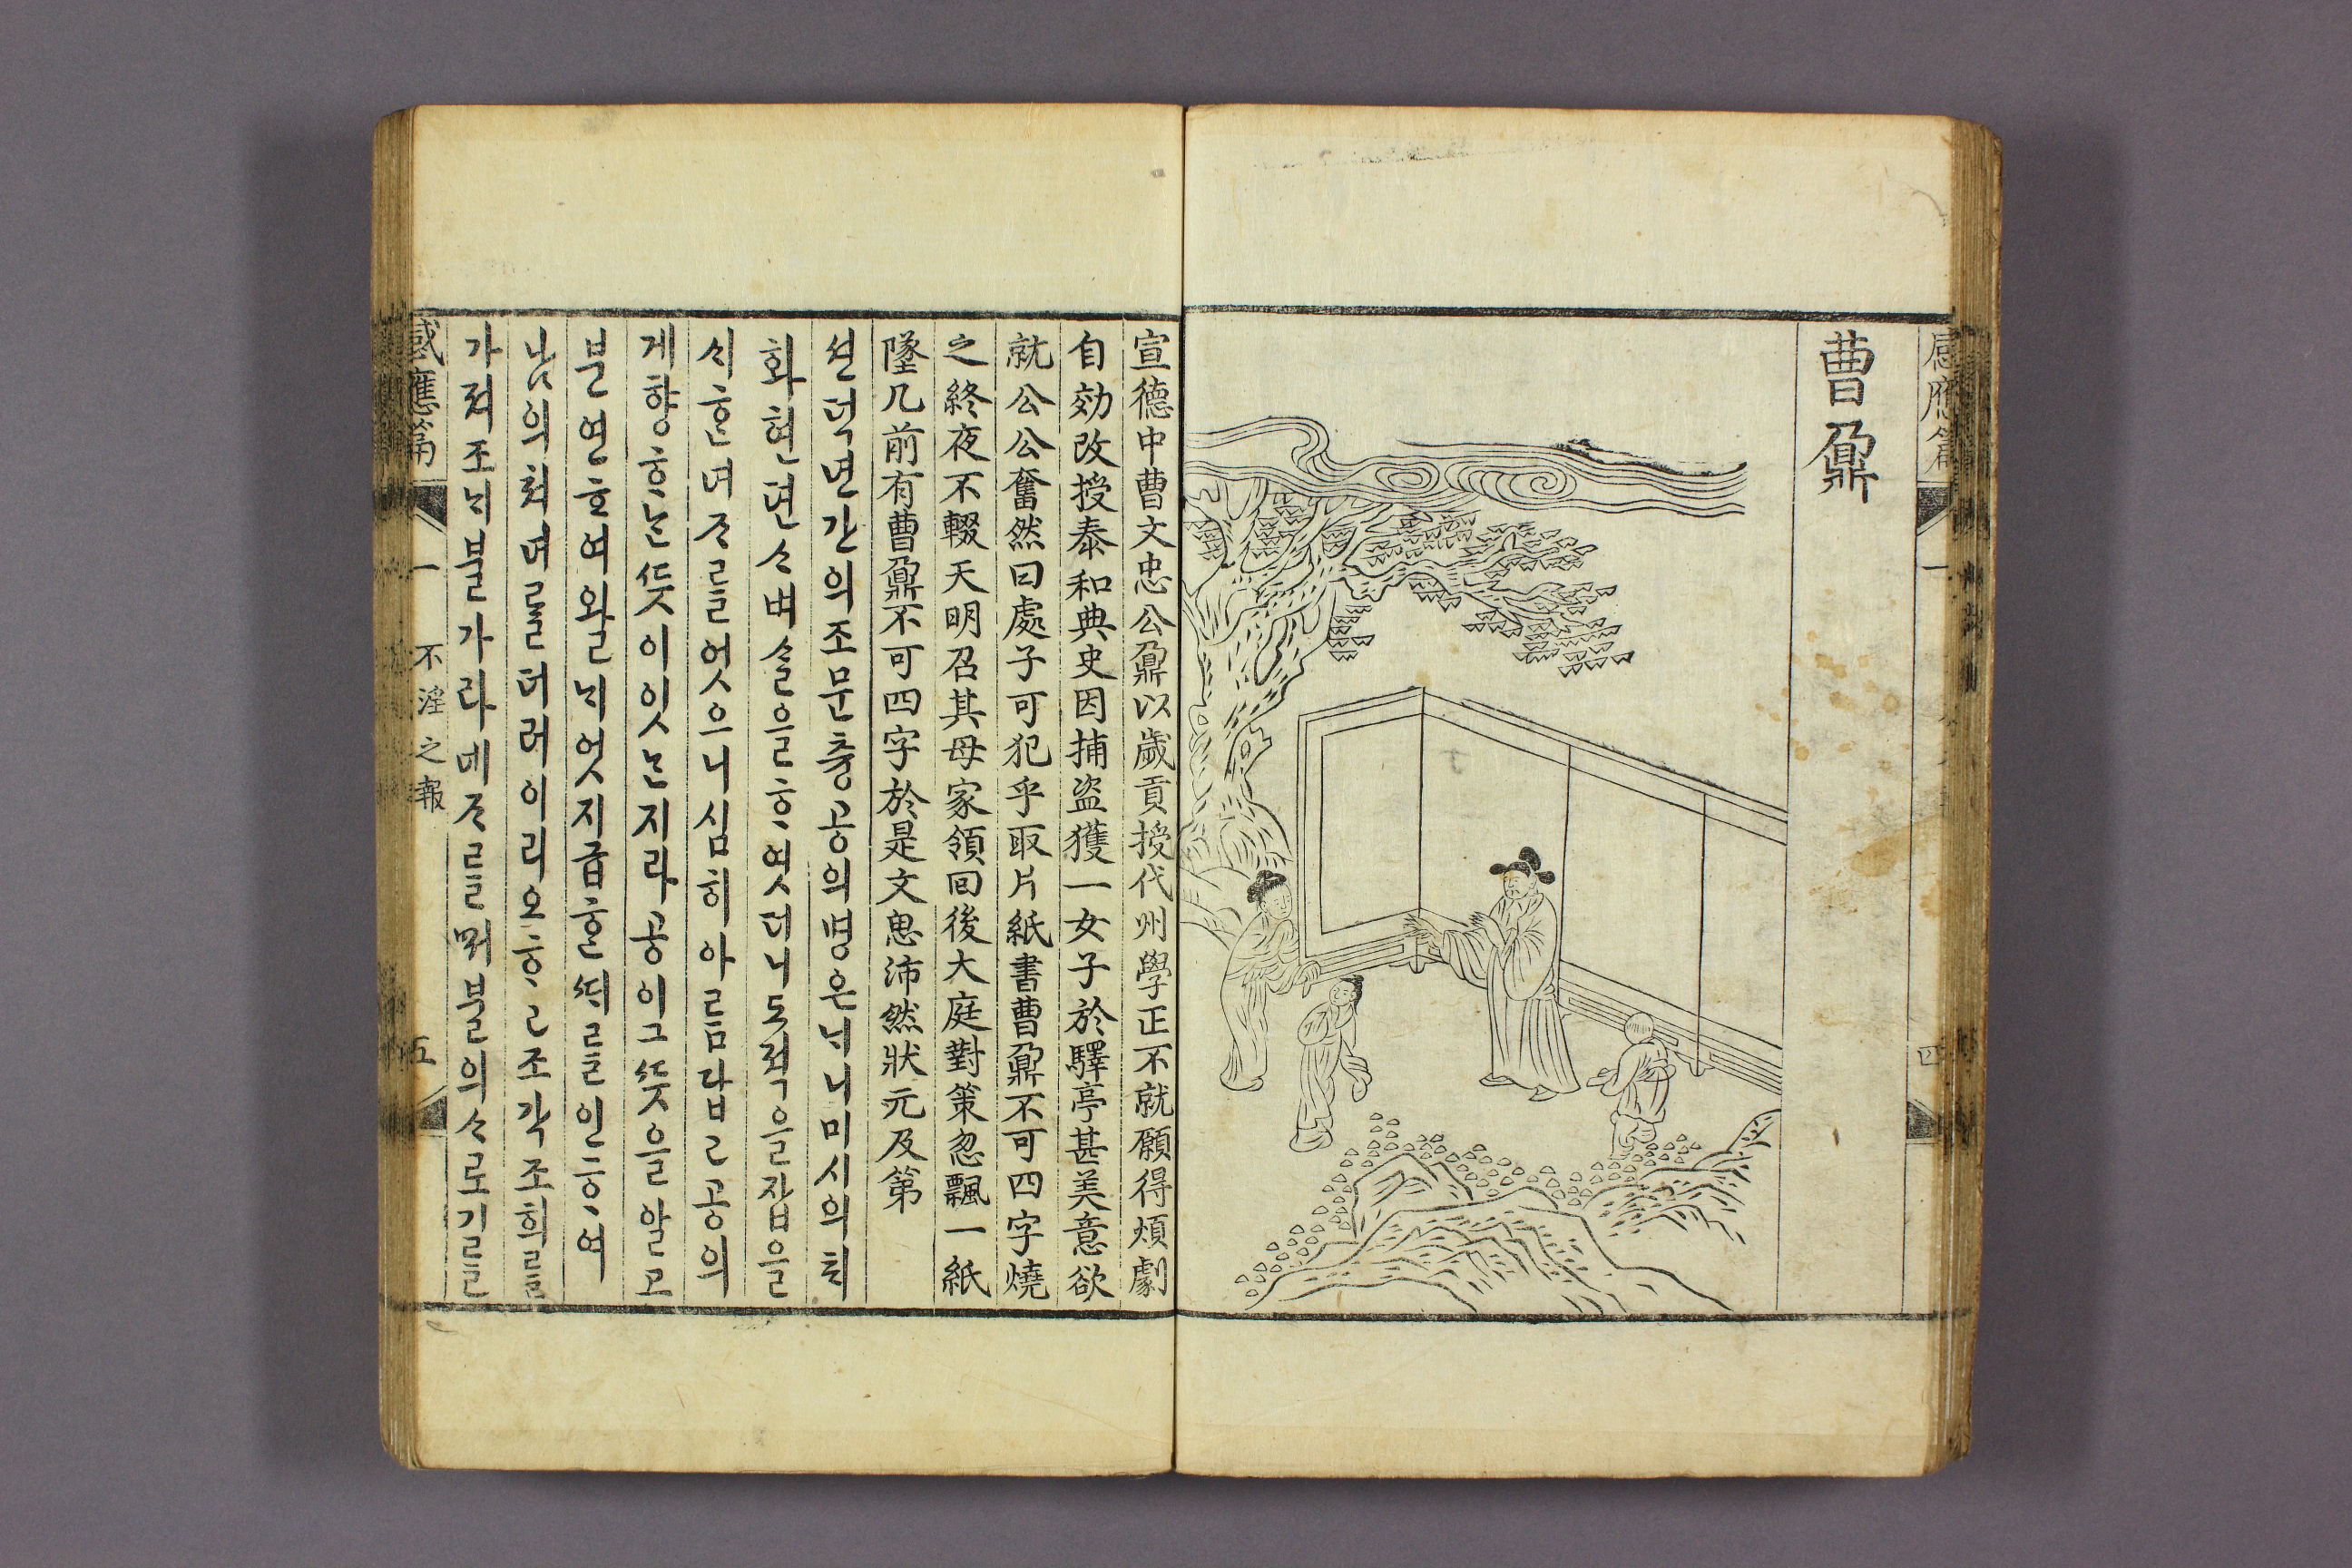 感應篇 一 四
曹鼐
宣德中曹文忠公鼐以歲貢授代州學正不就願得煩劇
自効改授泰和典史因捕盜獲一女子於驛亭甚美意欲
就公公奮然曰處子可犯乎取片紙書曹鼐不可四字燒
之終夜不輟天明召其母家領回後大庭對策忽飄一紙
墜几前有曹鼐不可四字於是文思沛然狀元及第
션덕년간의조문츙공의명은ᄂᆡ니미시의ᄐᆡ
화현뎐ᄉᆞ벼ᄉᆞᆯ을ᄒᆞ엿더니도적을잡을
ᄉᆡᄒᆞᆫ녀ᄌᆞᄅᆞᆯ엇으니심히아ᄅᆞᆷ답고공의
게향ᄒᆞᄂᆞᆫᄯᅳᆺ이잇ᄂᆞᆫ지라공이그ᄯᅳᆺ을알고
분연ᄒᆞ여왈ᄂᆡ엇지급ᄒᆞᆫᄯᆡᄅᆞᆯ인ᄒᆞ여
ᄂᆞᆷ의쳐녀ᄅᆞᆯ더러이리오ᄒᆞ고조각조희ᄅᆞᆯ
가져조ᄂᆡ불가라네ᄌᆞᄅᆞᆯᄡᅥ불의ᄉᆞ로기ᄅᆞᆯ
感應篇 一 不淫之報 五